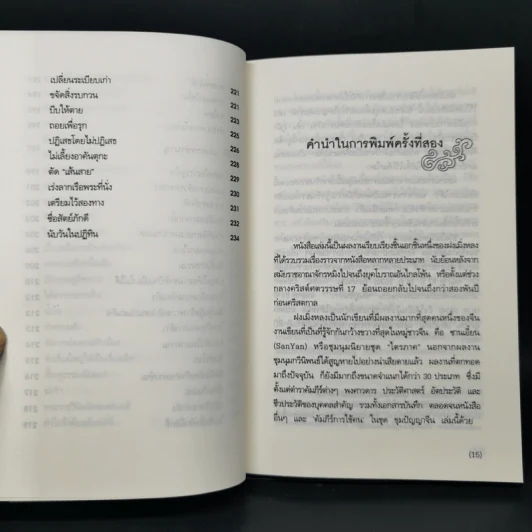 เปลี่ยนระเบียบเก่า 221
ขจัดสิ่งรบกวน 221
บีบให้ตาย
ถอยเพื่อรุก
ปฏิเสธโดยไม่ปฏิเสธ
ไม่เลี้ยงอาคันตุกะ
ตัด "เส้นสาย" 229
เร่งลากเรือพระที่นั่ง 230
เตรียมไว้สองทาง 231
ซื่อสัตย์ภักดี
นับวันในปฏิทิน 234
คำนำในการพิมพ์ครั้งที่สอง
หนังสือเล่มนี้เป็นผลงานเรียบเรียงชิ้นเอกชิ้นหนึ่งของฝงเมิ่งหลง
ที่ได้รวบรวมเรื่องราวจากหนังสือหลากหลายประเภท นับย้อนหลังจาก
สมัยราชอาณาจักรหมิงไปจนถึงยุคโบราณอันไกลโพ้น หรือตั้งแต่ช่วง
กลางคริสต์ศตวรรษที่ 17 ย้อนถอยกลับไปจนถึงกว่าสองพันปี
ก่อนคริสตกาล
ฝงเมิ่งหลงเป็นนักเขียนที่มีผลงานมากที่สุดคนหนึ่งของจีน
งานเขียนที่เป็นที่รู้จักกันกว้างขวางที่สุดในหมู่ชาวจีน คือ ซานเอี๋ยน
(SanYan) หรือชุมนุมนิยายชุด "ไตรภาค" นอกจากผลงาน
ชุมนุมกวีนิพนธ์ได้สูญหายไปอย่างน่าเสียดายแล้ว ผลงานที่ตกทอด
มาถึงปัจจุบัน ก็ยังมีมากถึงขนาดจำแนกได้กว่า 30 ประเภท ซึ่งมี
ตั้งแต่ตำราคัมภีร์ต่างๆ พงศาวดาร ประวัติศาสตร์ อัตประวัติ และ
ชีวประวัติของบุคคลสำคัญ รวมทั้งเอกสารบันทึก ตลอดจนหนังสือ
อื่นๆ และ 'คัมภีร์การใช้คน' ในชุด ขุมปัญญาจีน เล่มนี้ด้วย
(15)